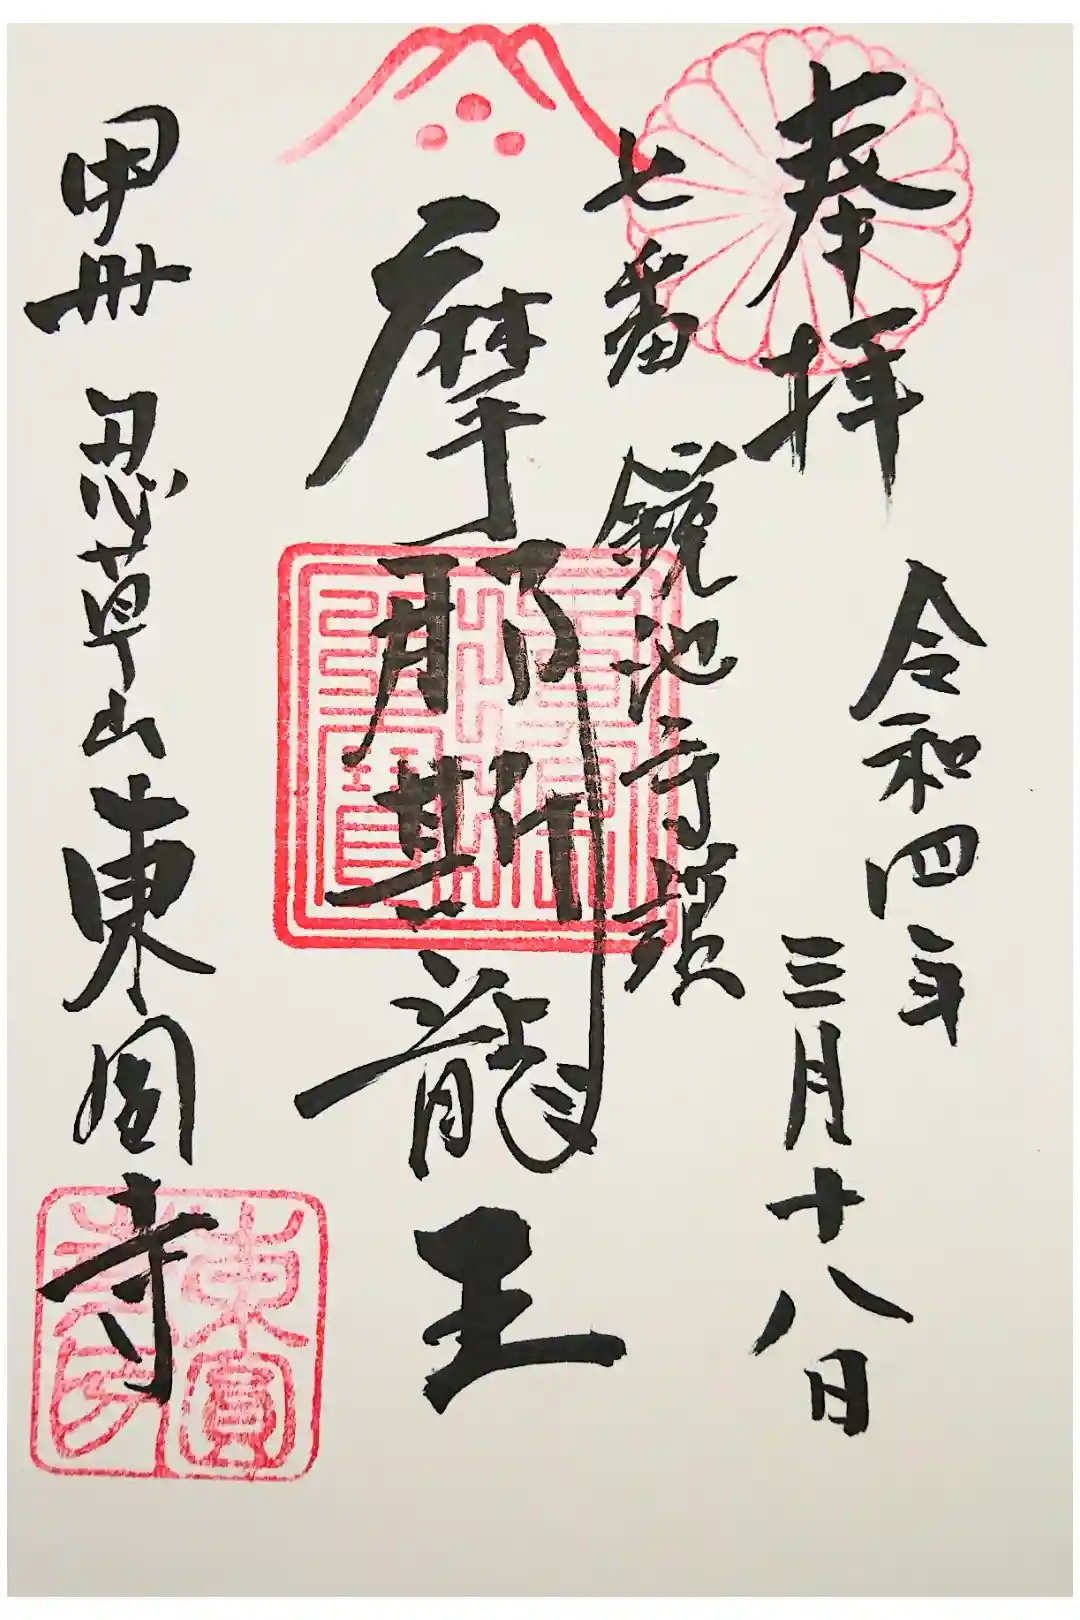 奉拝
令和四年
三月十八日
七番 鏡池寺蹟
摩耶斯龍王
甲州 忍草山東圓寺